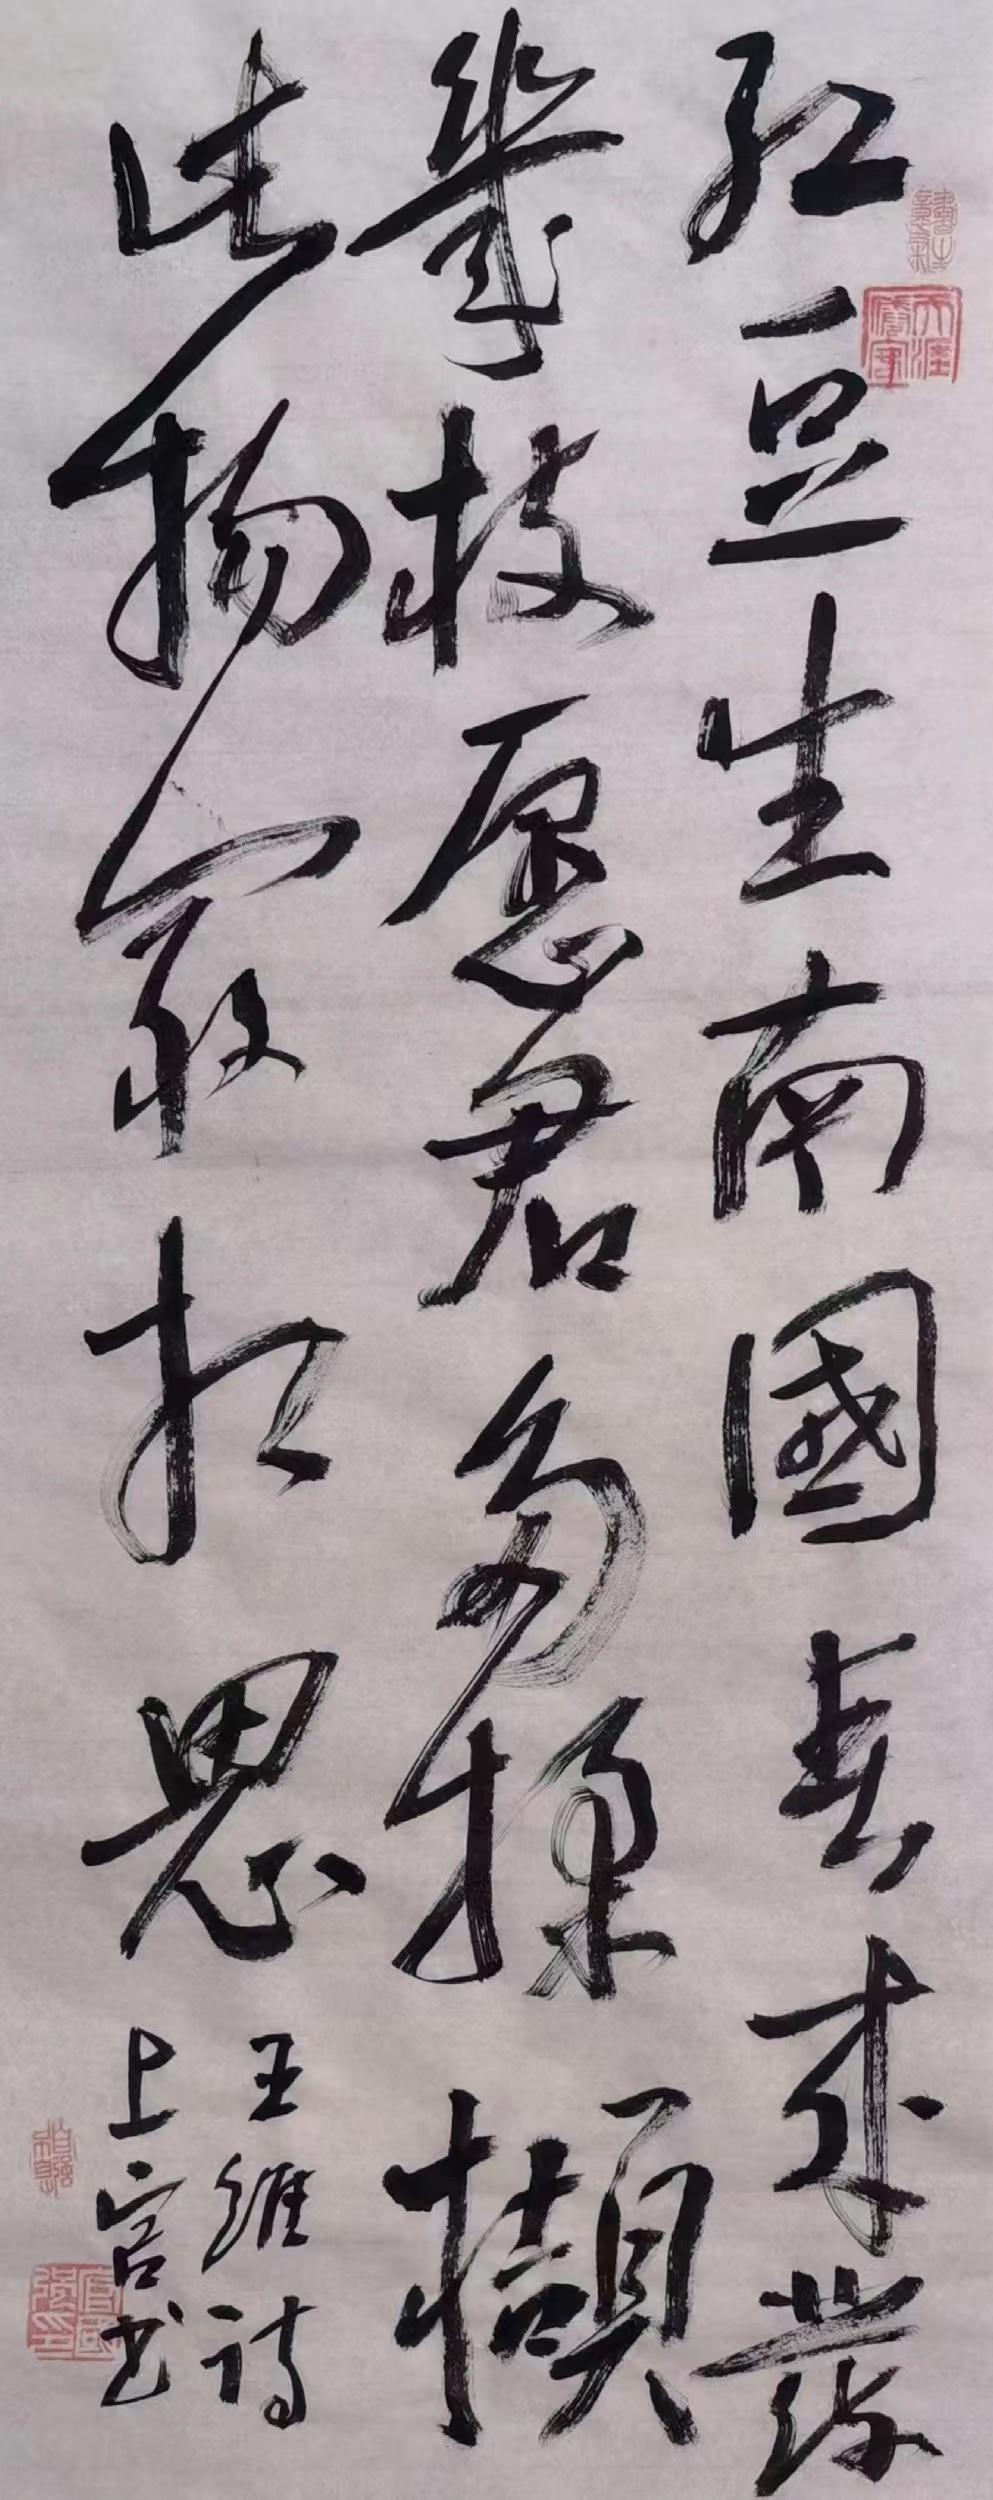 红豆生南國春来發
幾枝愿君多採擷
此物最相思
王維詩
上官书